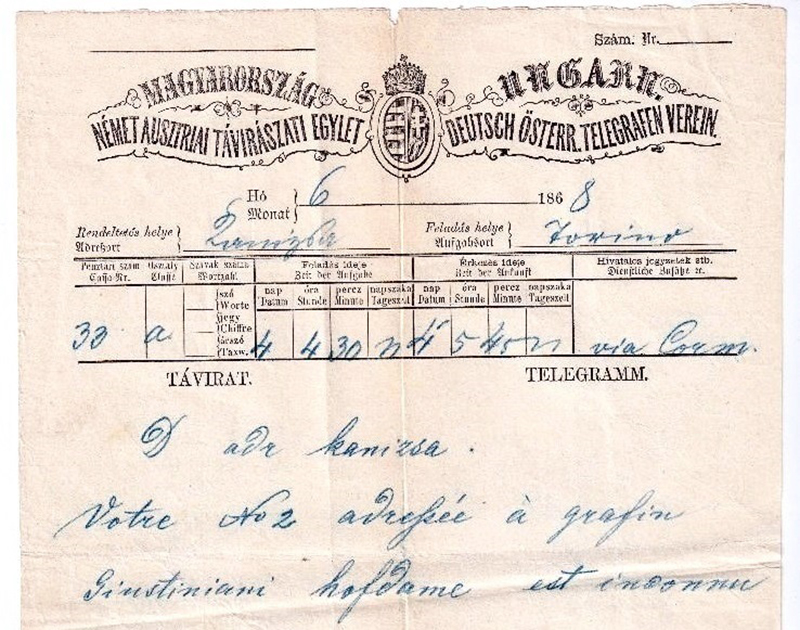 Szám. Nr.
MAGYARORSZÁG UNGARN.
NÉMET AUSZTRIAI TÁVIRÁSZATI EGYLET DEUTSCH ÖSTERR. TELEGRAFEN VEREIN.
Hó 6 1868
Monat
Rendeltetés helye Kanizsa Feladás helye Torino
Adreßort Aufgabsort
Pénztári szám Osztály Szavak száma Feladás ideje Érkezés ideje Hivatalos jegyzetek stb.
Cassa Nr. Classe Wortzahl Zeit der Aufgabe Zeit der Ankunft Dienstliche Zusätze ec.
szó nap óra percz napszaka nap óra percz napszaka
Worte Datum Stunde Minute Tageszeit Datum Stunde Minute Tageszeit
jegy
Chiffre
Taxw.
33 a 4 4 30 n 4 5 45 n via Corm.
TÁVIRAT. TELEGRAMM.
D adr kanizsa.
Votre No 2 adreßée à grafin
Giustiniani hofdame est inconnu